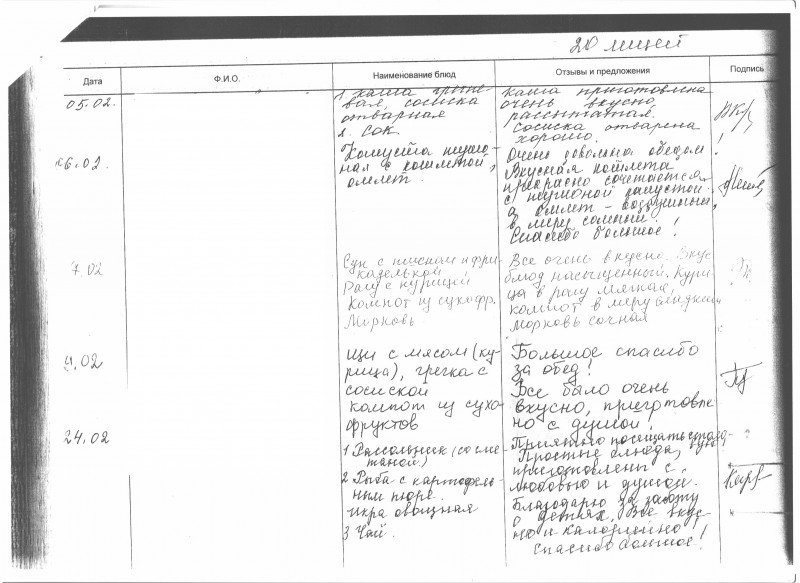 20 лицей
Дата Ф.И.О. Наименование блюд Отзывы и предложения Подпись
05.02. 1. каша грече-
вая, сосиска
отварная
2. Сок.
Каша приготовлена
очень вкусно,
рассыпчатая.
Сосиска отварена
хорошо.
6.02. Капуста туше-
ная с котлетой,
омлет.
Очень довольна обедом!
Вкусная котлета
прекрасно сочетается
с тушеной капустой,
а омлет - воздушный,
в меру соленый.
Спасибо большое!
7.02 Суп с мясной фри-
каделькой
Рагу с курицей
Компот из сухофр.
Морковь
Все очень вкусно. Вкус
блюд насыщенный. Кури-
ца в рагу мягкая,
компот в меру сладкий
морковь сочная
02 Щи с мясом (ку-
рица), гречка с
сосиской
компот из сухо
фруктов
Большое спасибо
за обед!
Все было очень
вкусно, приготовле
но с душой!
24.02 1 Рассольник (со сме-
таной)
2 Рыба с картофель-
ным пюре.
икра овощная
3 Чай.
Приятно посещать
Простые блюда,
приготовлены с
любовью и душой.
Благодарю за заботу
о детях. Все вкус-
но и калорийно
Спасибо большое!